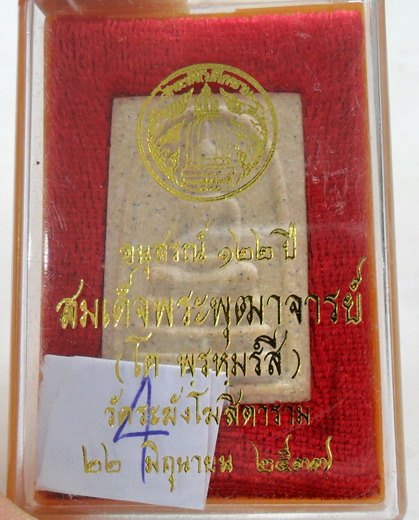 อนุสรณ์ ๑๒๒ ปี
สมเด็จพระพุฒาจารย์
(โต พรหฺมรํสี)
วัดระฆังโฆสิตาราม
4
๒๒ มิถุนายน ๒๕๓๗